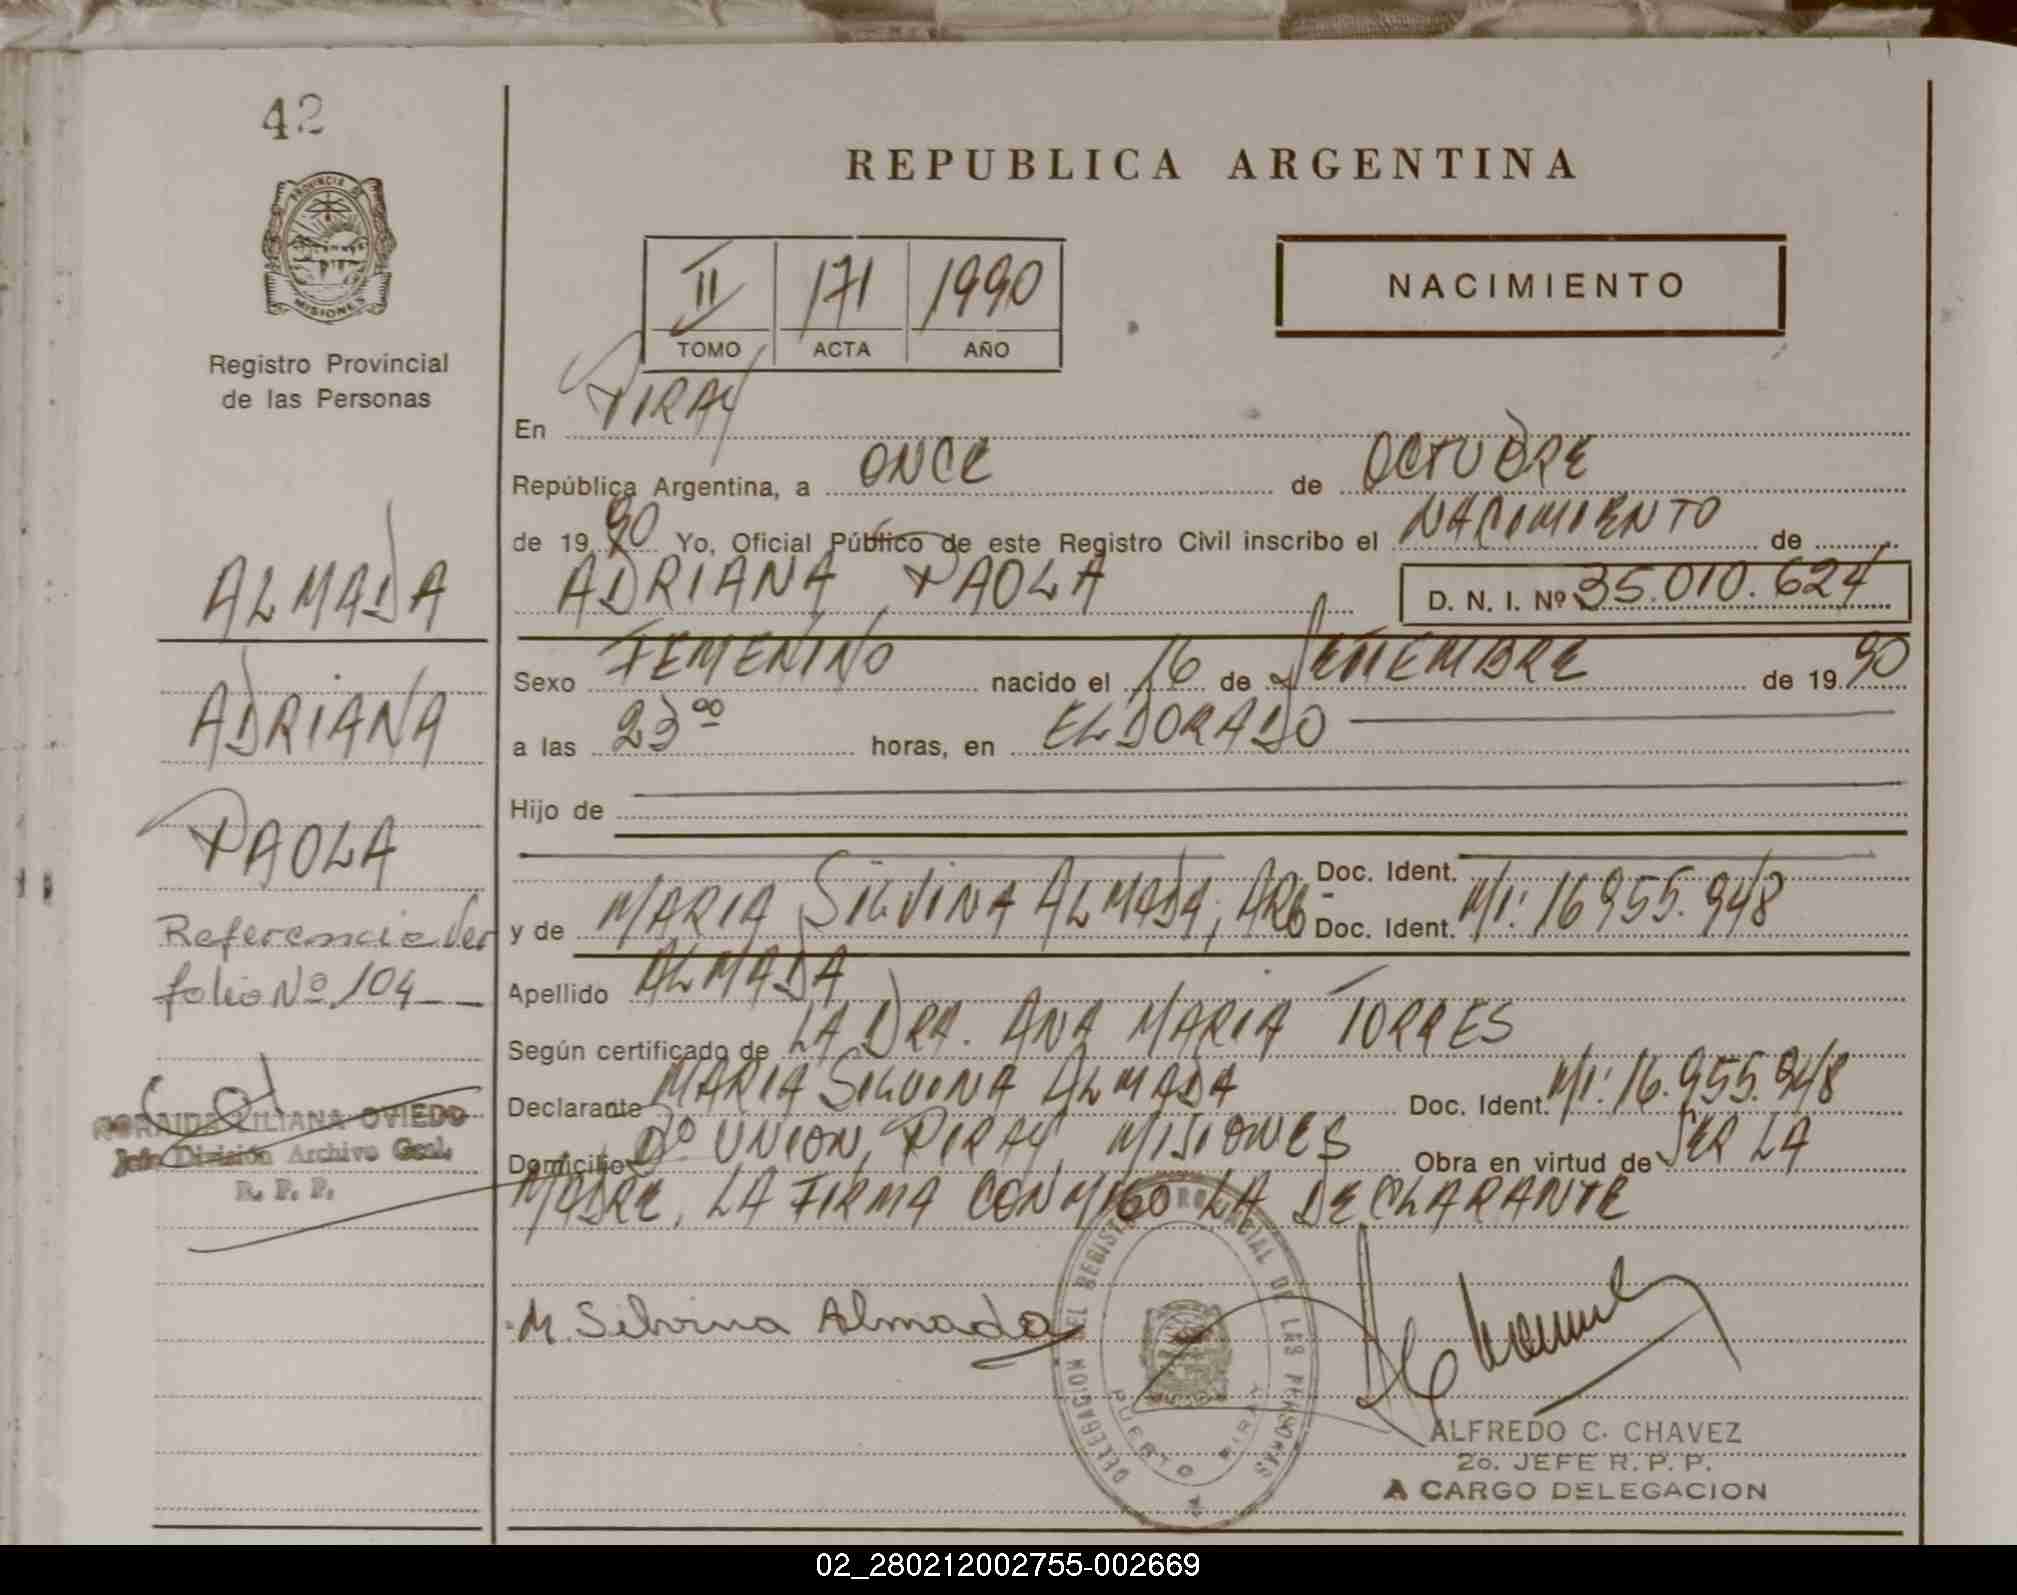 42
PROVINCIA DE
MISIONES
Registro Provincial
de las Personas
ALMADA
ADRIANA
PAOLA
Referencia Ver
folio Nº 104
LILIANA OVIEDO
Jefe División Archivo Gral.
R. P. P.
REPUBLICA ARGENTINA
II 171 1990
TOMO ACTA AÑO
NACIMIENTO
En PIRAY
República Argentina, a ONCE de OCTUBRE
de 1990 Yo, Oficial Público de este Registro Civil inscribo el NACIMIENTO de
ADRIANA PAOLA D. N. I. Nº 35.010.624
Sexo FEMENINO nacido el 16 de SETIEMBRE de 1990
a las 23⁰⁰ horas, en ELDORADO
Hijo de
Doc. Ident.
y de MARIA SILVINA ALMADA, ARG Doc. Ident. MI: 16955.948
Apellido ALMADA
Según certificado de LA DRA. ANA MARIA TORRES
Declarante MARIA SILVINA ALMADA Doc. Ident. MI: 16.955.948
Domicilio Bº UNION, PIRAY MISIONES Obra en virtud de SER LA
MADRE, LA FIRMA CONMIGO LA DECLARANTE
M. Silvina Almada
DELEGACION DEL REGISTRO PROVINCIAL DE LAS PERSONAS
PUERTO PIRAY
ALFREDO C. CHAVEZ
2o. JEFE R. P. P.
A CARGO DELEGACION
02_280212002755-002669